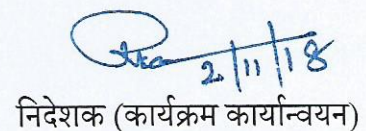 2/11/18
निदेशक (कार्यक्रम कार्यान्वयन)